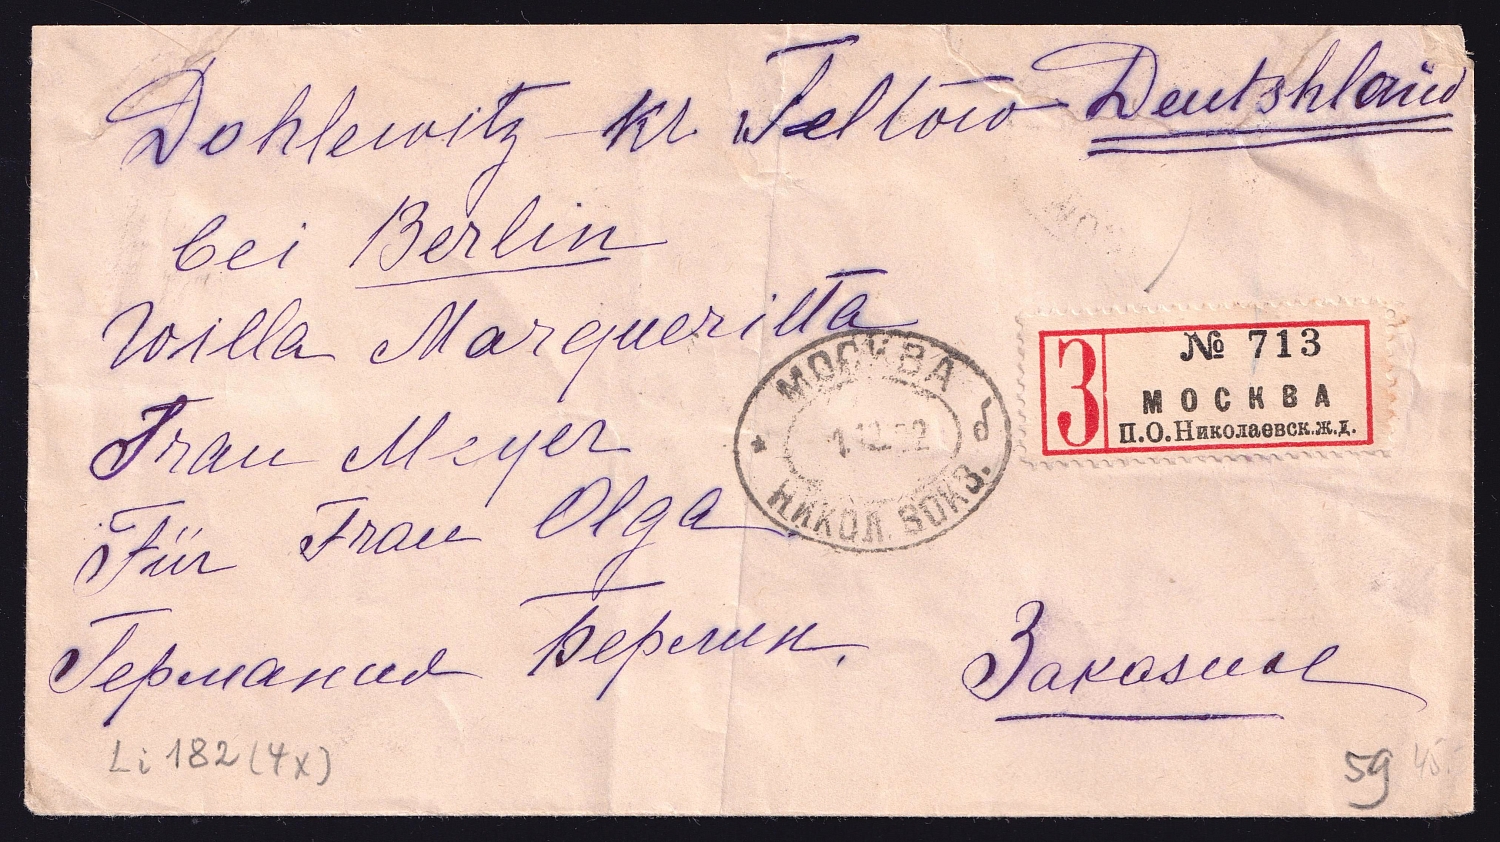 Dohlewitz - kr Teltow Deutshland
bei Berlin
Willa Margueritta
Frau Meyer
Für Frau Olga
Германия Берлин.
Заказное
№ 713
З
МОСКВА
П.О.Николаевск.ж.д.
МОСКВА
1.12.22
* НИКОЛ. ВОКЗ.
Li 182 (4x)
59
45.-